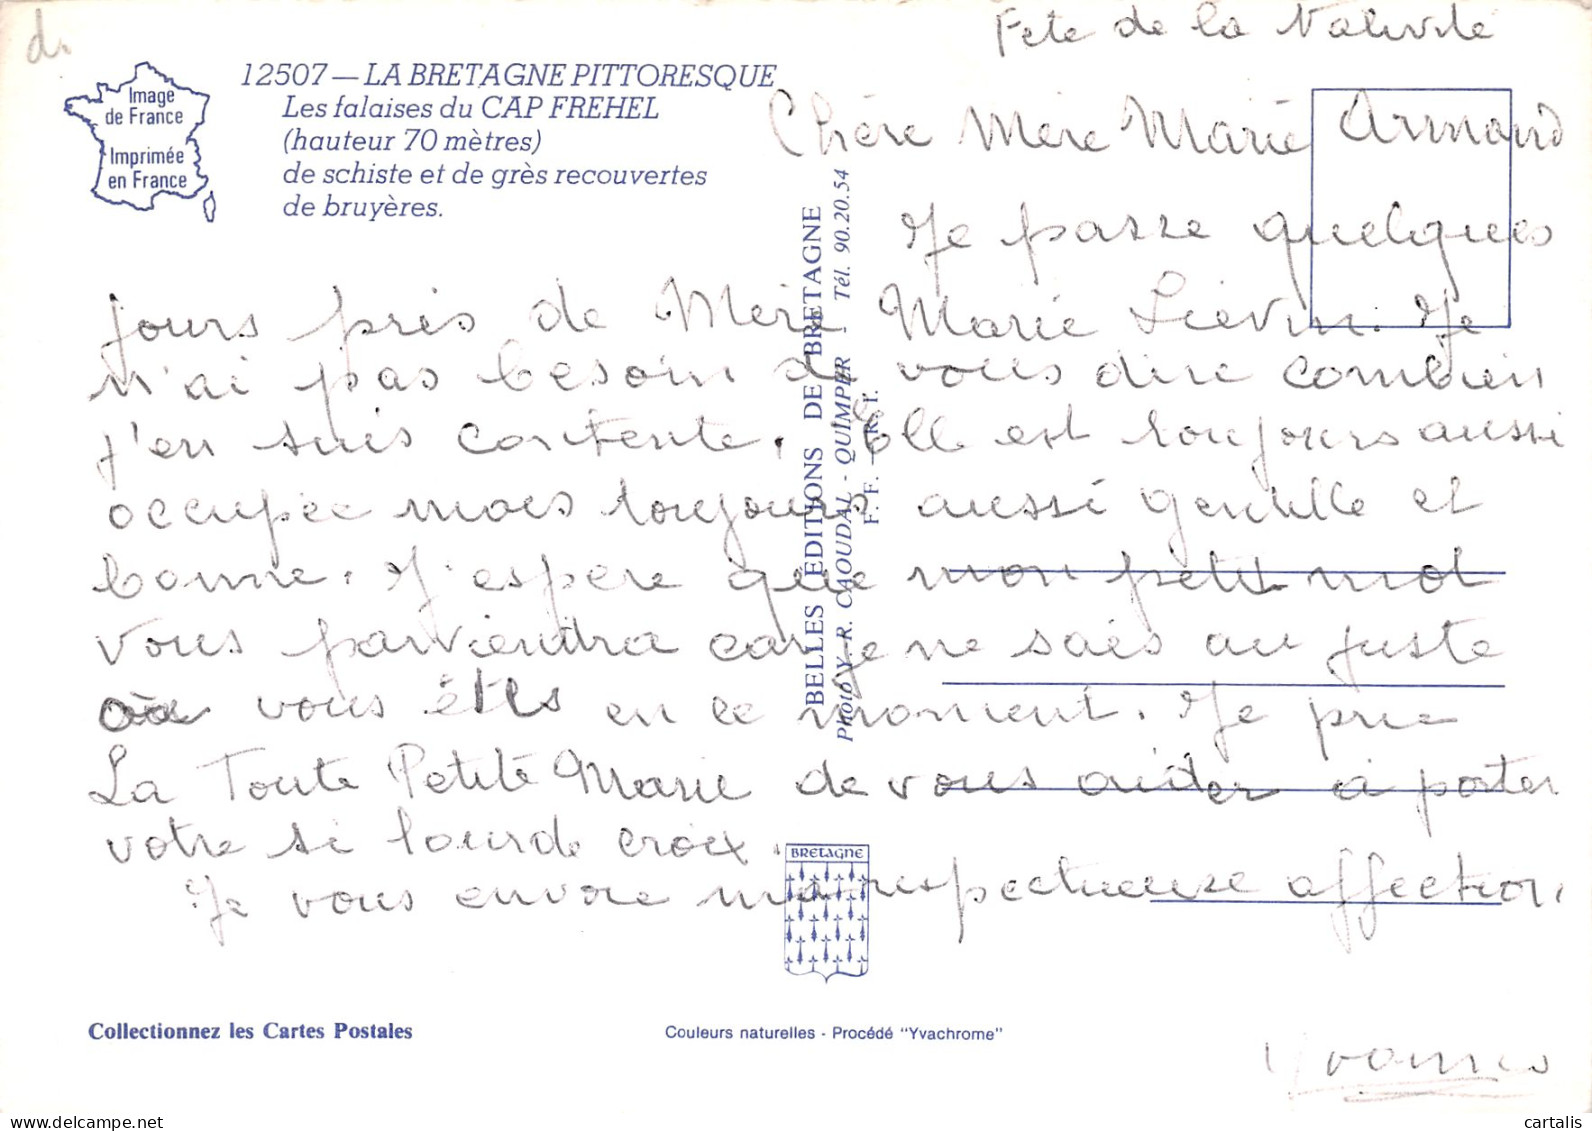 Fete de la Nativité
Image
de France
Imprimée
en France
12507 — LA BRETAGNE PITTORESQUE
Les falaises du CAP FREHEL
(hauteur 70 mètres)
de schiste et de grès recouvertes
de bruyères.
Chère Mère Marie Armand
Je passe quelques
jours près de Mère Marie Liévin. Je
n'ai pas besoin de vous dire combien
j'en suis contente. Elle est toujours aussi
occupée mais toujours aussi gentille et
bonne. J'espère que mon petit mot
vous parviendra car je ne sais au juste
où vous êtes en ce moment. Je prie
La Toute Petite Marie de vous aider à porter
votre si lourde croix.
Je vous envoie ma respectueuse affection.
BELLES EDITIONS DE BRETAGNE
Photo Y. R. CAOUDAL - QUIMPER - Tél. 90.20.54
BRETAGNE
Collectionnez les Cartes Postales
Couleurs naturelles - Procédé "Yvachrome"
delcampe.net
cartalis